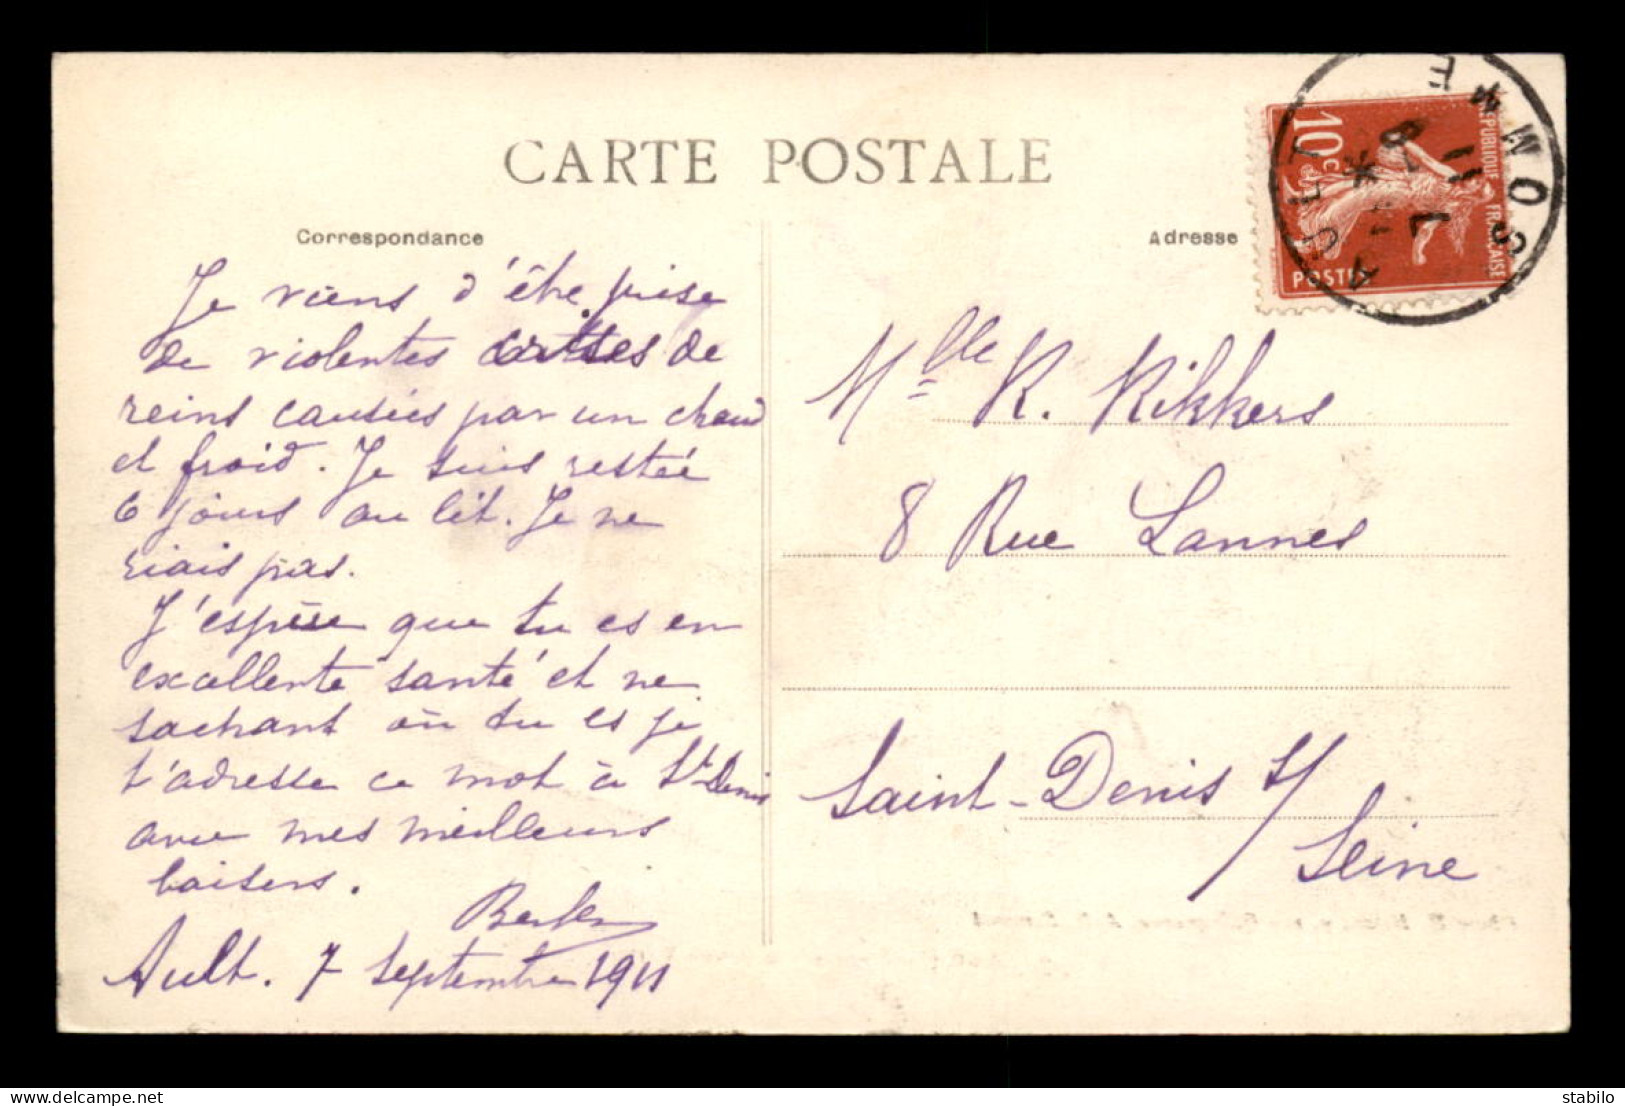 CARTE POSTALE
Correspondance
Adresse
Je viens d'être prise
de violentes crises de
reins causées par un chaud
et froid. Je suis restée
6 jours au lit. Je ne
riais pas.
J'espère que tu es en
excellente santé et ne
sachant où tu es je
t'adresse ce mot à St Denis
avec mes meilleurs
baisers.
Ault. 7 septembre 1911
Mlle R. Rikkers
8 Rue Lannes
Saint-Denis s/
Seine
RÉPUBLIQUE FRANÇAISE
10c
POSTES
AULT
SOMME
7
11
stabilo
delcampe.net